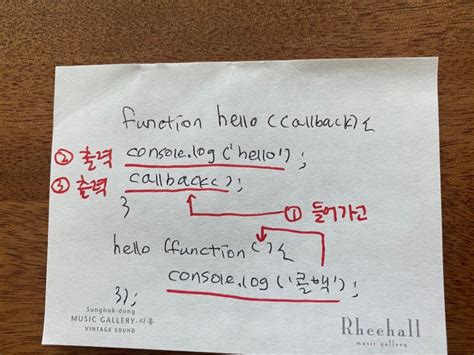 function hello (callback) {
② 출력 console.log ('hello');
③ 출력 callback();
}
① 들어가고
hello (function () {
console.log ('콜백');
});
Sungbuk-dong
MUSIC GALLERY·리홀
VINTAGE SOUND
Rheehall
music gallery